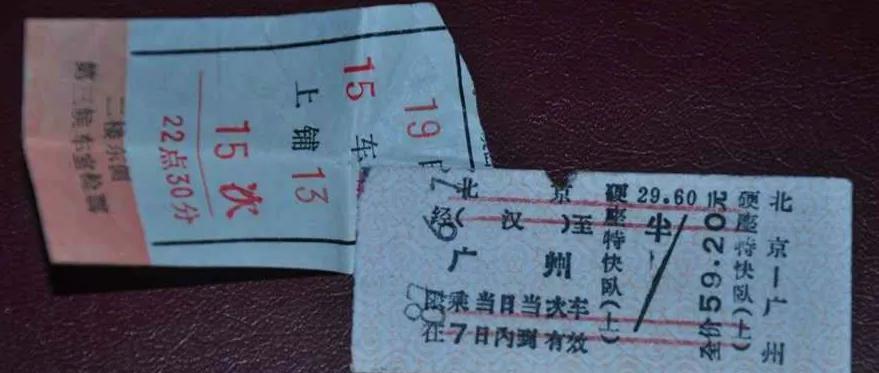 19日
15车
上铺13
15次
22点30分
二楼东侧
第三候车室检票
北京
经(汉)至
广州
限乘当日当次车
在7日内到有效
硬座特快卧(上)
29.60
半
全价59.20元
硬座特快卧(上)
北京—广州